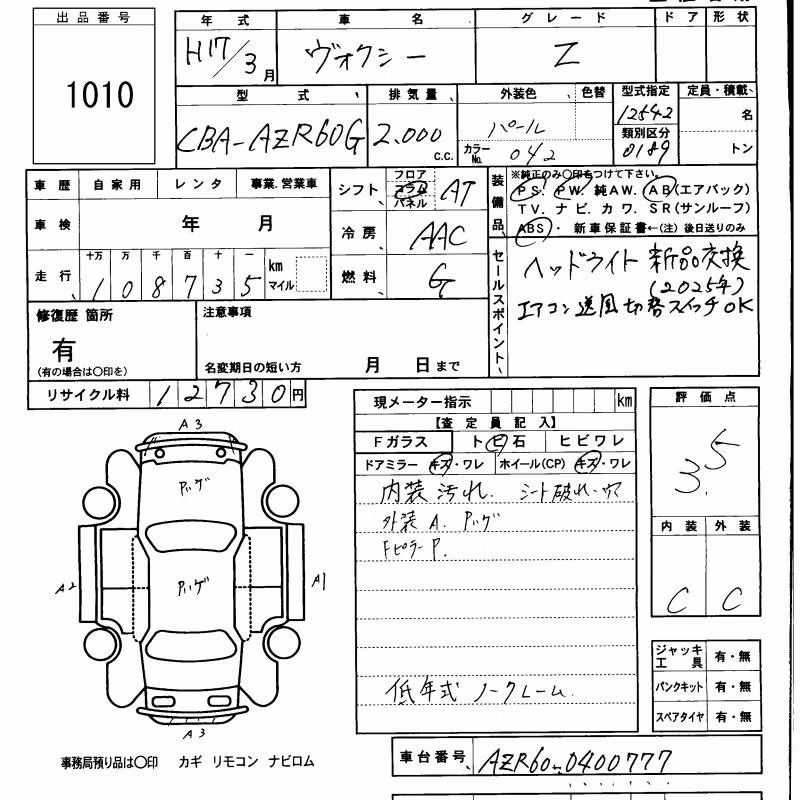 出品番号
1010
年式 車名 グレード ドア 形状
H17/3月 ヴォクシー Z
型式 排気量 外装色 色替 型式指定 定員・積載
CBA-AZR60G 2.000 c.c. パール 12542 名
カラーNo. 042 類別区分 0189 トン
車歴 自家用 レンタ 事業.営業車
シフト フロア コラム パネル AT
車検 年 月
冷房 AAC
走行 十万 万 千 百 十 一
108735 km マイル
燃料 G
装備品
※純正のみ○印をつけて下さい。
PS. PW. 純AW. AB(エアバック)
TV. ナビ. カワ. SR(サンルーフ)
ABS・ 新車保証書←(注)後日送りのみ
セールスポイント
ヘッドライト 新品交換
(2025年)
エアコン送風切替スイッチOK
修復歴 箇所
有
(有の場合は○印を)
注意事項
名変期日の短い方 月 日まで
リサイクル料 12730円
現メーター指示 km
【査定員記入】
Fガラス トビ石 ヒビワレ
ドアミラー キズ・ワレ ホイール(CP) キズ・ワレ
内装汚れ. シート破れ・穴
外装A. Pハゲ
FピラーP.
低年式 ノークレーム
評価点
3.5
内装 外装
C C
ジャッキ工具 有・無
パンクキット 有・無
スペアタイヤ 有・無
A3
Pハゲ
Pハゲ
A2
A1
A3
事務局預り品は○印 カギ リモコン ナビロム
車台番号 AZR60-0400777